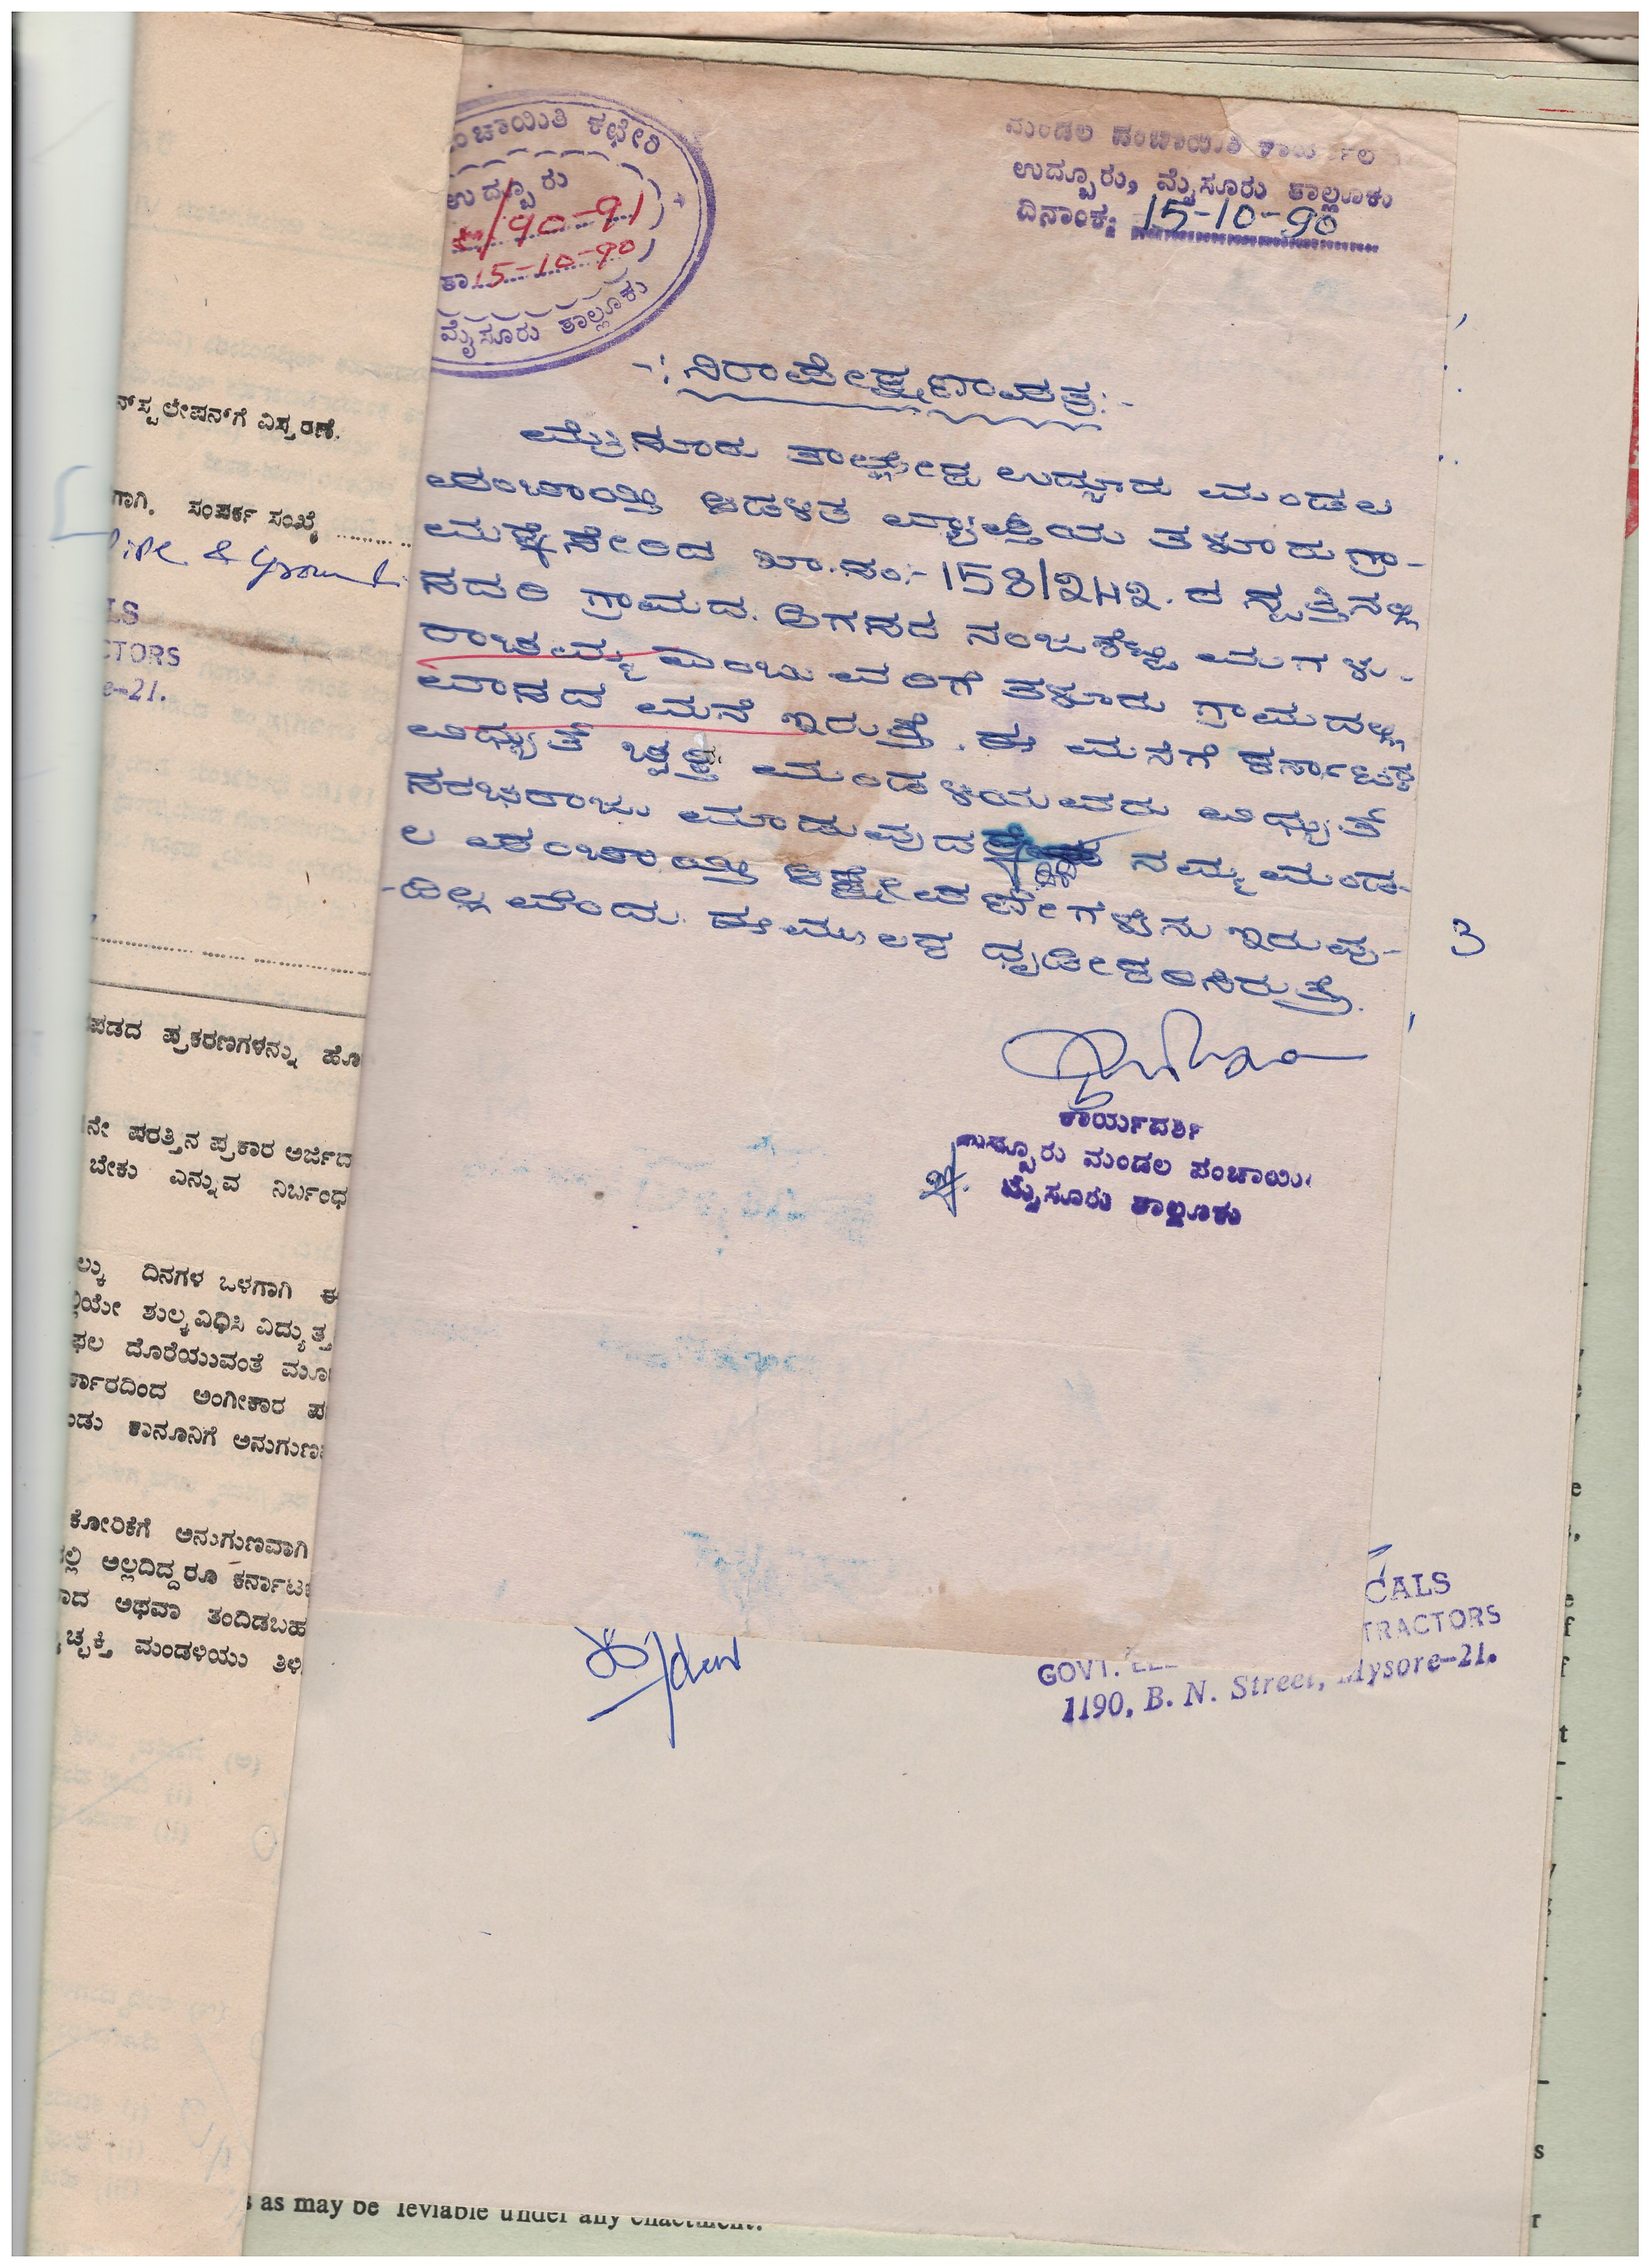 ಪಂಚಾಯಿತಿ ಕಛೇರಿ
ಉದ್ಬೂರು
/90-91
ತಾ 15-10-90
ಮೈಸೂರು ತಾಲ್ಲೂಕು
ಮಂಡಲ ಪಂಚಾಯಿತಿ
ಉದ್ಬೂರು, ಮೈಸೂರು ತಾಲ್ಲೂಕು
ದಿನಾಂಕ: 15-10-90
-: ನಿರಾಪೇಕ್ಷಣಾಪತ್ರ:-
ಮೈಸೂರು ತಾಲ್ಲೋಕು ಉದ್ಬೂರು ಮಂಡಲ
ಪಂಚಾಯ್ತಿ ಆಡಳಿತ ವ್ಯಾಪ್ತಿಯ ತಳೂರು ಗ್ರಾ-
ಮಕ್ಕೆ ಸೇರಿದ ಖಾ.ನಂ:- 158/242. ರ ಸ್ವತ್ತಿನಲ್ಲಿ
ಸದರಿ ಗ್ರಾಮದ. ಅಗಸರ ನಂಜಶೆಟ್ಟಿ ಮಗಳು-
ರಾಚಮ್ಮ ಎಂಬುವರಿಗೆ ತಳೂರು ಗ್ರಾಮದಲ್ಲಿ
ವಾಸದ ಮನೆ ಇರುತ್ತೆ. ಈ ಮನೆಗೆ ಕರ್ನಾಟಕ
ವಿಧ್ಯುತ್ ಚ್ಛಕ್ತಿ ಮಂಡಳಿಯವರು ವಿಧ್ಯುತ್
ಸರಬರಾಜು ಮಾಡುವುದ ನಮ್ಮ ಮಂಡ-
ಲ ಪಂಚಾಯ್ತಿ ಆಕ್ಷೇಪಣೇಗಳೆನು ಇರುವು-
-ದಿಲ್ಲವೆಂದು ಈ ಮೂಲಕ ಧೃಡೀಕರಿಸಿರುತ್ತೆ.
3
ಕಾರ್ಯದರ್ಶಿ
ಉದ್ಬೂರು ಮಂಡಲ ಪಂಚಾಯಿ
ಮೈಸೂರು ತಾಲ್ಲೂಕು
ನ್‌ಸ್ಟಲೇಷನ್‌ಗೆ ವಿಸ್ತರಣೆ.
ಗಾಗಿ, ಸಂಪರ್ಕ ಸಂಖ್ಯೆ ..........
LS
CTORS
e-21.
ಪಡದ ಪ್ರಕರಣಗಳನ್ನು ಹೊ
ನೇ ಷರತ್ತಿನ ಪ್ರಕಾರ ಅರ್ಜಿದ
ಬೇಕು ಎನ್ನುವ ನಿರ್ಬಂಧ
ಲ್ಕು ದಿನಗಳ ಒಳಗಾಗಿ ಈ
ಲ್ಲಿಯೇ ಶುಲ್ಕ ವಿಧಿಸಿ ವಿದ್ಯುತ್ತ
ಫಲ ದೊರೆಯುವಂತೆ ಮೂ
ರ್ಕಾರದಿಂದ ಅಂಗೀಕಾರ ಪ
ಂಡು ಕಾನೂನಿಗೆ ಅನುಗುಣ
ಕೋರಿಕೆಗೆ ಅನುಗುಣವಾಗಿ
ಲ್ಲಿ ಅಲ್ಲದಿದ್ದರೂ ಕರ್ನಾಟ
ಾದ ಅಥವಾ ತಂದಿಡಬಹ
ಚ್ಛಕ್ತಿ ಮಂಡಳಿಯು ತಿಳಿ
CALS
TRACTORS
GOVT.
1190, B. N. Street, Mysore-21.
s as may be leviable under any enactment.